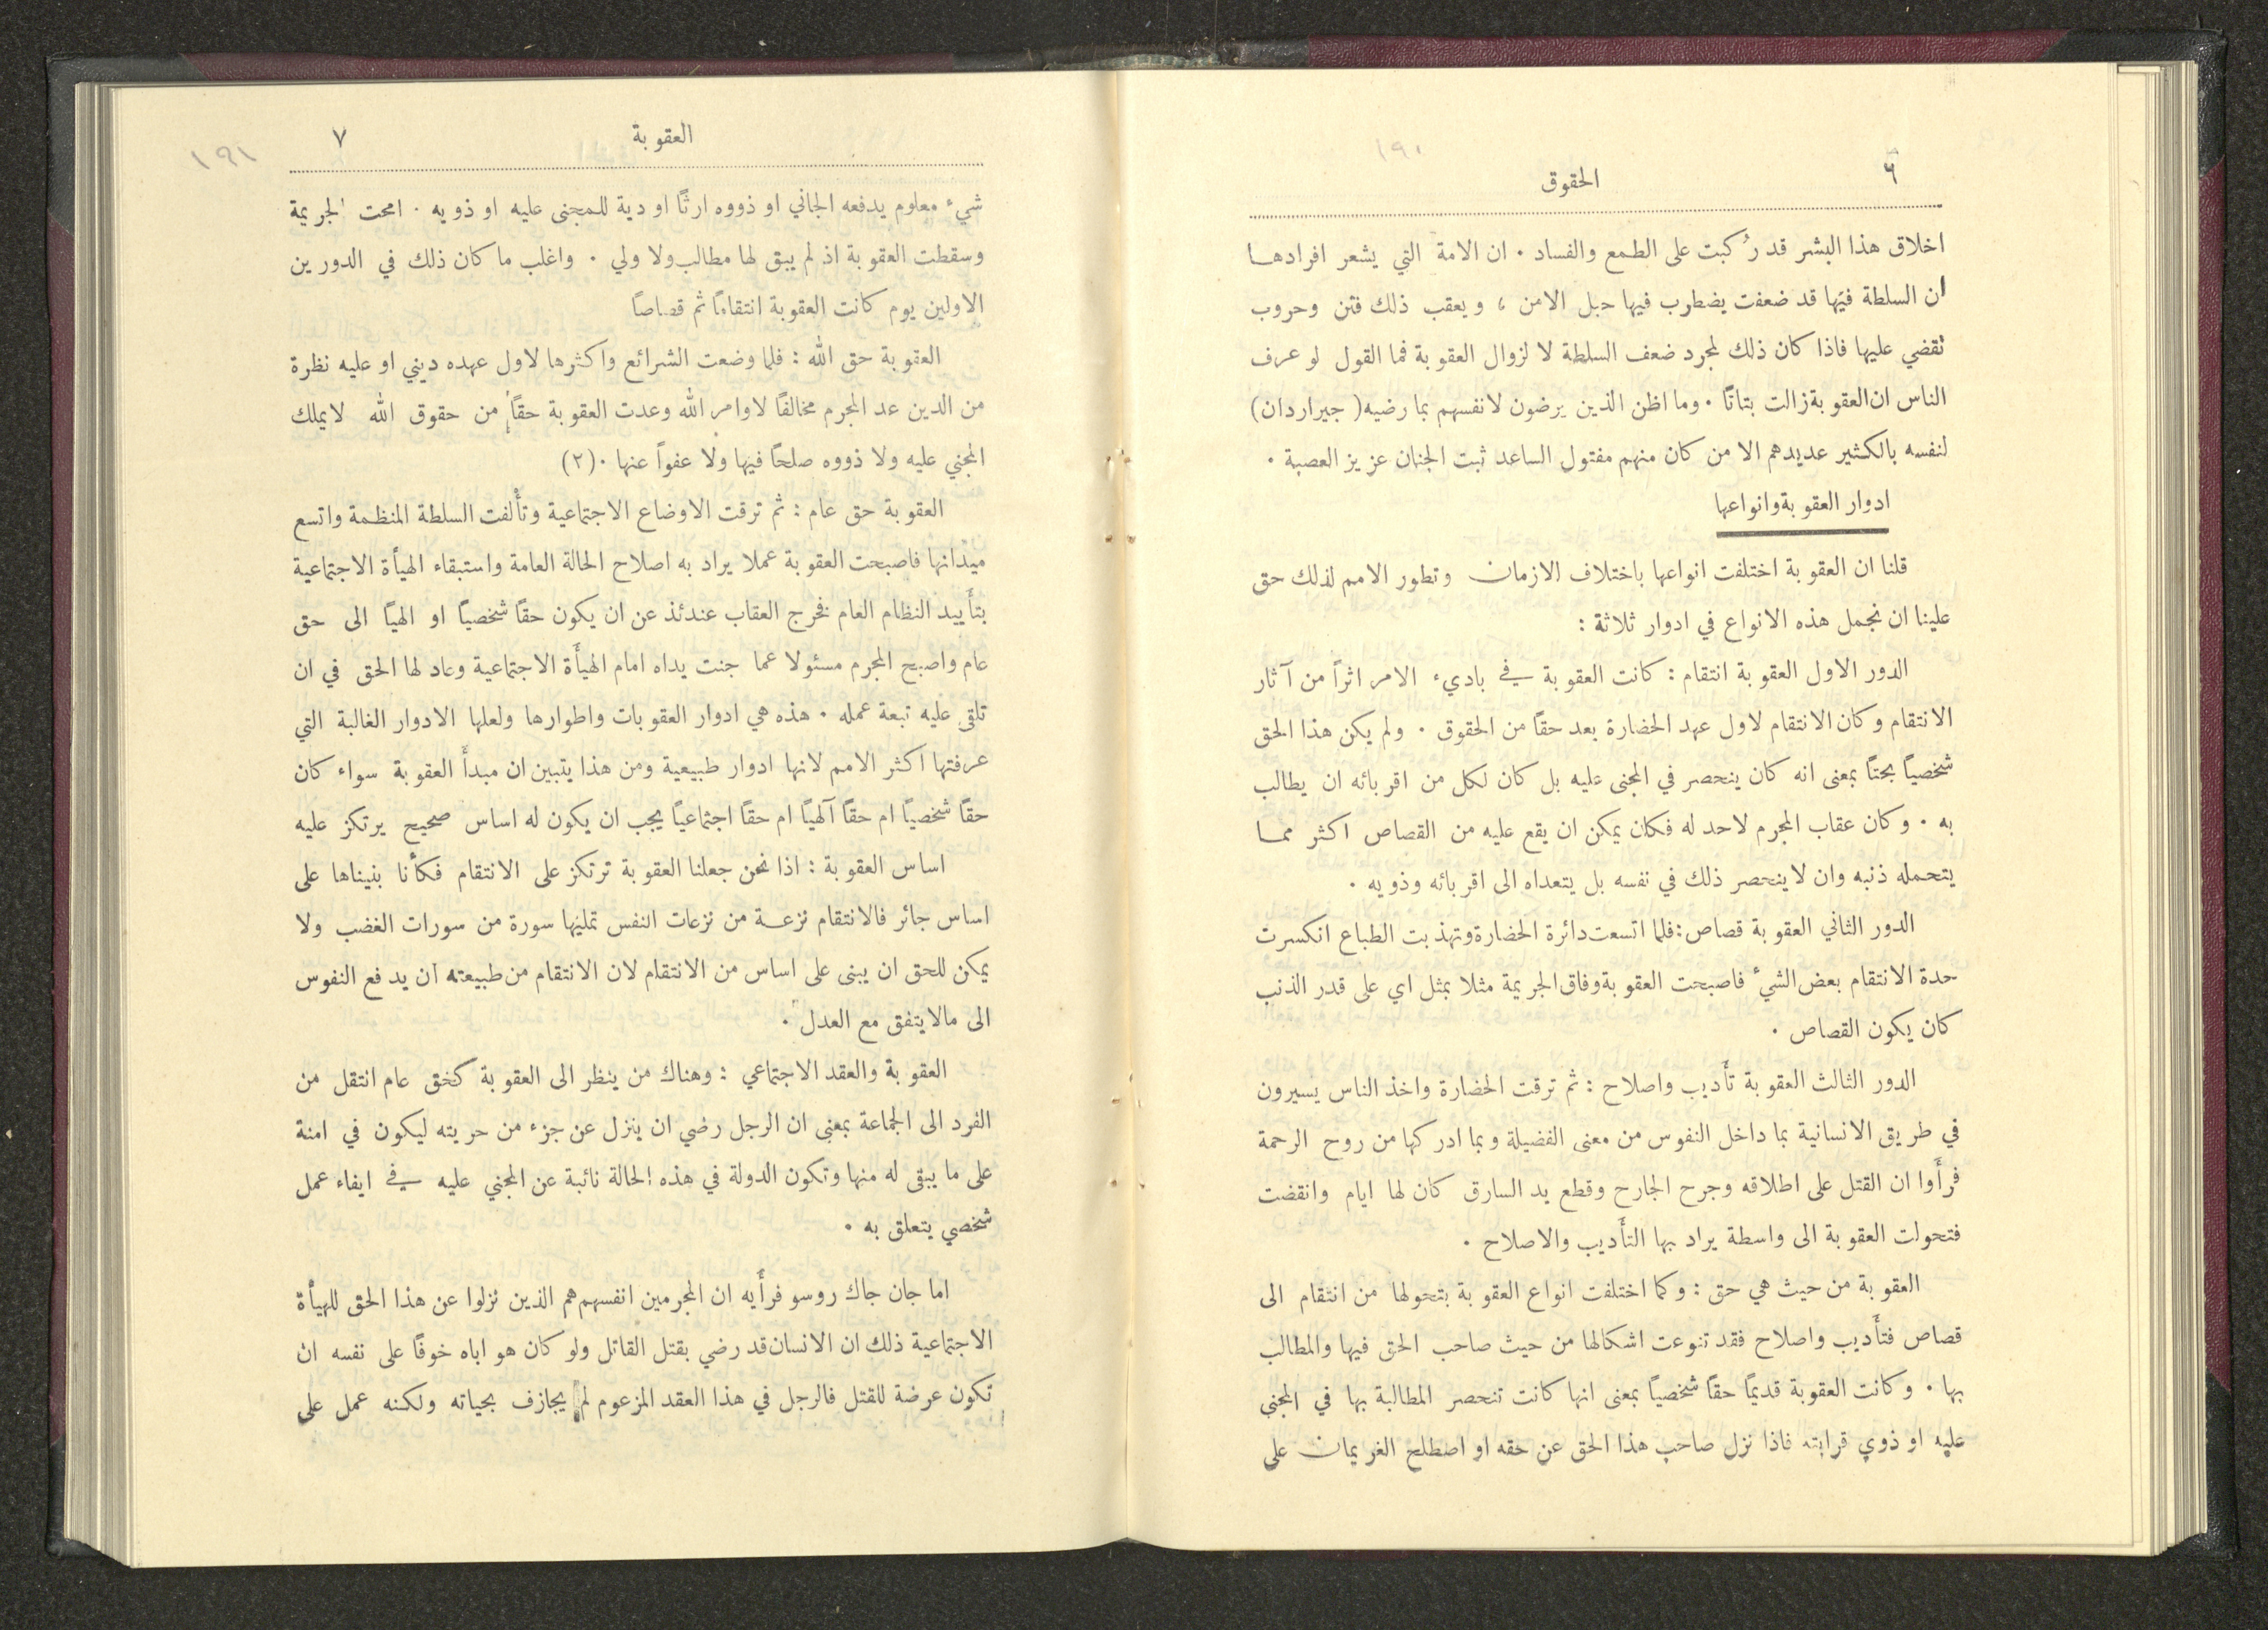 ١٩٠
٦
الحقوق
اخلاق هذا البشر قد رُكبت على الطمع والفساد . ان الامة التي يشعر افرادها
ان السلطة فيها قد ضعفت يضطرب فيها حبل الامن ، ويعقب ذلك فتن وحروب
تقضي عليها فاذا كان ذلك لمجرد ضعف السلطة لا لزوال العقوبة فما القول لو عرف
الناس ان العقوبة زالت بتاتًا . وما اظن الذين يرضون لانفسهم بما رضيه (جيراردان)
لنفسه بالكثير عديدهم الا من كان منهم مفتول الساعد ثبت الجنان عزيز العصبة .
ادوار العقوبة وانواعها
قلنا ان العقوبة اختلفت انواعها باختلاف الازمان وتطور الامم لذلك حق
علينا ان نجمل هذه الانواع في ادوار ثلاثة :
الدور الاول العقوبة انتقام : كانت العقوبة في باديء الامر اثراً من آثار
الانتقام وكان الانتقام لاول عهد الحضارة يعد حقًا من الحقوق . ولم يكن هذا الحق
شخصياً بحتاً بمعنى انه كان ينحصر في المجنى عليه بل كان لكل من اقربائه ان يطالب
به . وكان عقاب المجرم لاحد له فكان يمكن ان يقع عليه من القصاص اكثر مما
يتحمله ذنبه وان لا ينحصر ذلك في نفسه بل يتعداه الى اقربائه وذويه .
الدور الثاني العقوبة قصاص : فلما اتسعت دائرة الحضارة وتهذبت الطباع انكسرت
حدة الانتقام بعض الشيء فاصبحت العقوبة وفاق الجريمة مثلا بمثل اي على قدر الذنب
كان يكون القصاص .
الدور الثالث العقوبة تأَديب واصلاح : ثم ترقت الحضارة واخذ الناس يسيرون
في طريق الانسانية بما داخل النفوس من معنى الفضيلة وبما ادركها من روح الرحمة
فرأَوا ان القتل على اطلاقه وجرح الجارح وقطع يد السارق كان لها ايام وانقضت
فتحولت العقوبة الى واسطة يراد بها التأَديب والاصلاح .
العقوبة من حيث هي حق : وكما اختلفت انواع العقوبة بتحولها من انتقام الى
قصاص فتأَديب واصلاح فقد تنوعت اشكالها من حيث صاحب الحق فيها والمطالب
بها . وكانت العقوبة قديمًا حقًا شخصيًا بمعنى انها كانت تنحصر المطالبة بها في المجنى
عليه او ذوي قرابته فاذا نزل صاحب هذا الحق عن حقه او اصطلح الغريمان على
١٩١
٧
العقوبة
شيء معلوم يدفعه الجاني او ذووه ارثًا او دية للمجنى عليه او ذويه . امحت الجريمة
وسقطت العقوبة اذ لم يبق لها مطالب ولا ولي . واغلب ما كان ذلك في الدورين
الاولين يوم كانت العقوبة انتقامًا ثم قصاصًا
العقوبة حق الله : فلما وضعت الشرائع واكثرها لاول عهده ديني او عليه نظرة
من الدين عد المجرم مخالفًا لاوامر الله وعدت العقوبة حقًا من حقوق الله لا يملك
المجني عليه ولا ذووه صلحًا فيها ولا عفواً عنها . (٢)
العقوبة حق عام : ثم ترقت الاوضاع الاجتماعية وتألفت السلطة المنظمة واتسع
ميدانها فاصبحت العقوبة عملا يراد به اصلاح الحالة العامة واستبقاء الهيأة الاجتماعية
بتأَييد النظام العام فخرج العقاب عندئذ عن ان يكون حقًا شخصيًا او الهيًا الى حق
عام واصبح المجرم مسئولا عما جنت يداه امام الهيأَة الاجتماعية وعاد لها الحق في ان
تلقي عليه تبعة عمله . هذه هي ادوار العقوبات واطوارها ولعلها الادوار الغالبة التي
عرفتها اكثر الامم لانها ادوار طبيعية ومن هذا يتبين ان مبدأَ العقوبة سواء كان
حقًا شخصيًا ام حقًا آلهيًا ام حقًا اجتماعيًا يجب ان يكون له اساس صحيح يرتكز عليه
اساس العقوبة : اذا نحن جعلنا العقوبة ترتكز على الانتقام فكأنا بنيناها على
اساس جائر فالانتقام نزعة من نزعات النفس تمليها سورة من سورات الغضب ولا
يمكن للحق ان يبنى على اساس من الانتقام لان الانتقام من طبيعته ان يدفع النفوس
الى مالا يتفق مع العدل .
العقوبة والعقد الاجتماعي : وهناك من ينظر الى العقوبة كحق عام انتقل من
الفرد الى الجماعة بمعنى ان الرجل رضي ان ينزل عن جزء من حريته ليكون في امنة
على ما يبقى له منها وتكون الدولة في هذه الحالة نائبة عن المجني عليه في ايفاء عمل
شخصي يتعلق به .
اما جان جاك روسو فرأَيه ان المجرمين انفسهم هم الذين نزلوا عن هذا الحق للهيأة
الاجتماعية ذلك ان الانسان قد رضي بقتل القاتل ولو كان هو اباه خوفًا على نفسه ان
تكون عرضة للقتل فالرجل في هذا العقد المزعوم لم يجازف بحياته ولكنه عمل على